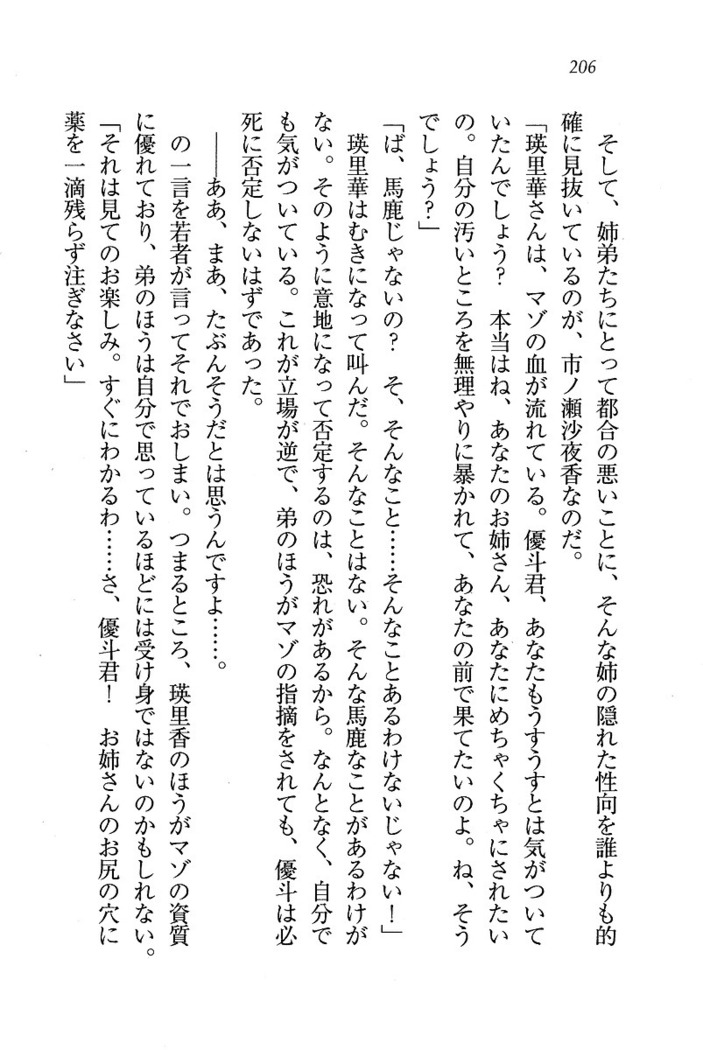 206
そして、姉弟たちにとって都合の悪いことに、そんな姉の隠れた性向を誰よりも的
確に見抜いているのが、市ノ瀬沙夜香なのだ。
「瑛里華さんは、マゾの血が流れている。優斗君、あなたもうすうすとは気がついて
いたんでしょう？　本当はね、あなたのお姉さん、あなたにめちゃくちゃにされたい
の。自分の汚いところを無理やりに暴かれて、あなたの前で果てたいのよ。ね、そう
でしょう？」
「ば、馬鹿じゃないの？　そ、そんなこと……そんなことあるわけないじゃない！」
瑛里華はむきになって叫んだ。そんなことはない。そんな馬鹿なことがあるわけが
ない。そのように意地になって否定するのは、恐れがあるから。なんとなく、自分で
も気がついている。これが立場が逆で、弟のほうがマゾの指摘をされても、優斗は必
死に否定しないはずであった。
――ああ、まあ、たぶんそうだとは思うんですよ……。
の一言を若者が言ってそれでおしまい。つまるところ、瑛里香のほうがマゾの資質
に優れており、弟のほうは自分で思っているほどには受け身ではないのかもしれない。
「それは見てのお楽しみ。すぐにわかるわ……さ、優斗君！　お姉さんのお尻の穴に
薬を一滴残らず注ぎなさい」